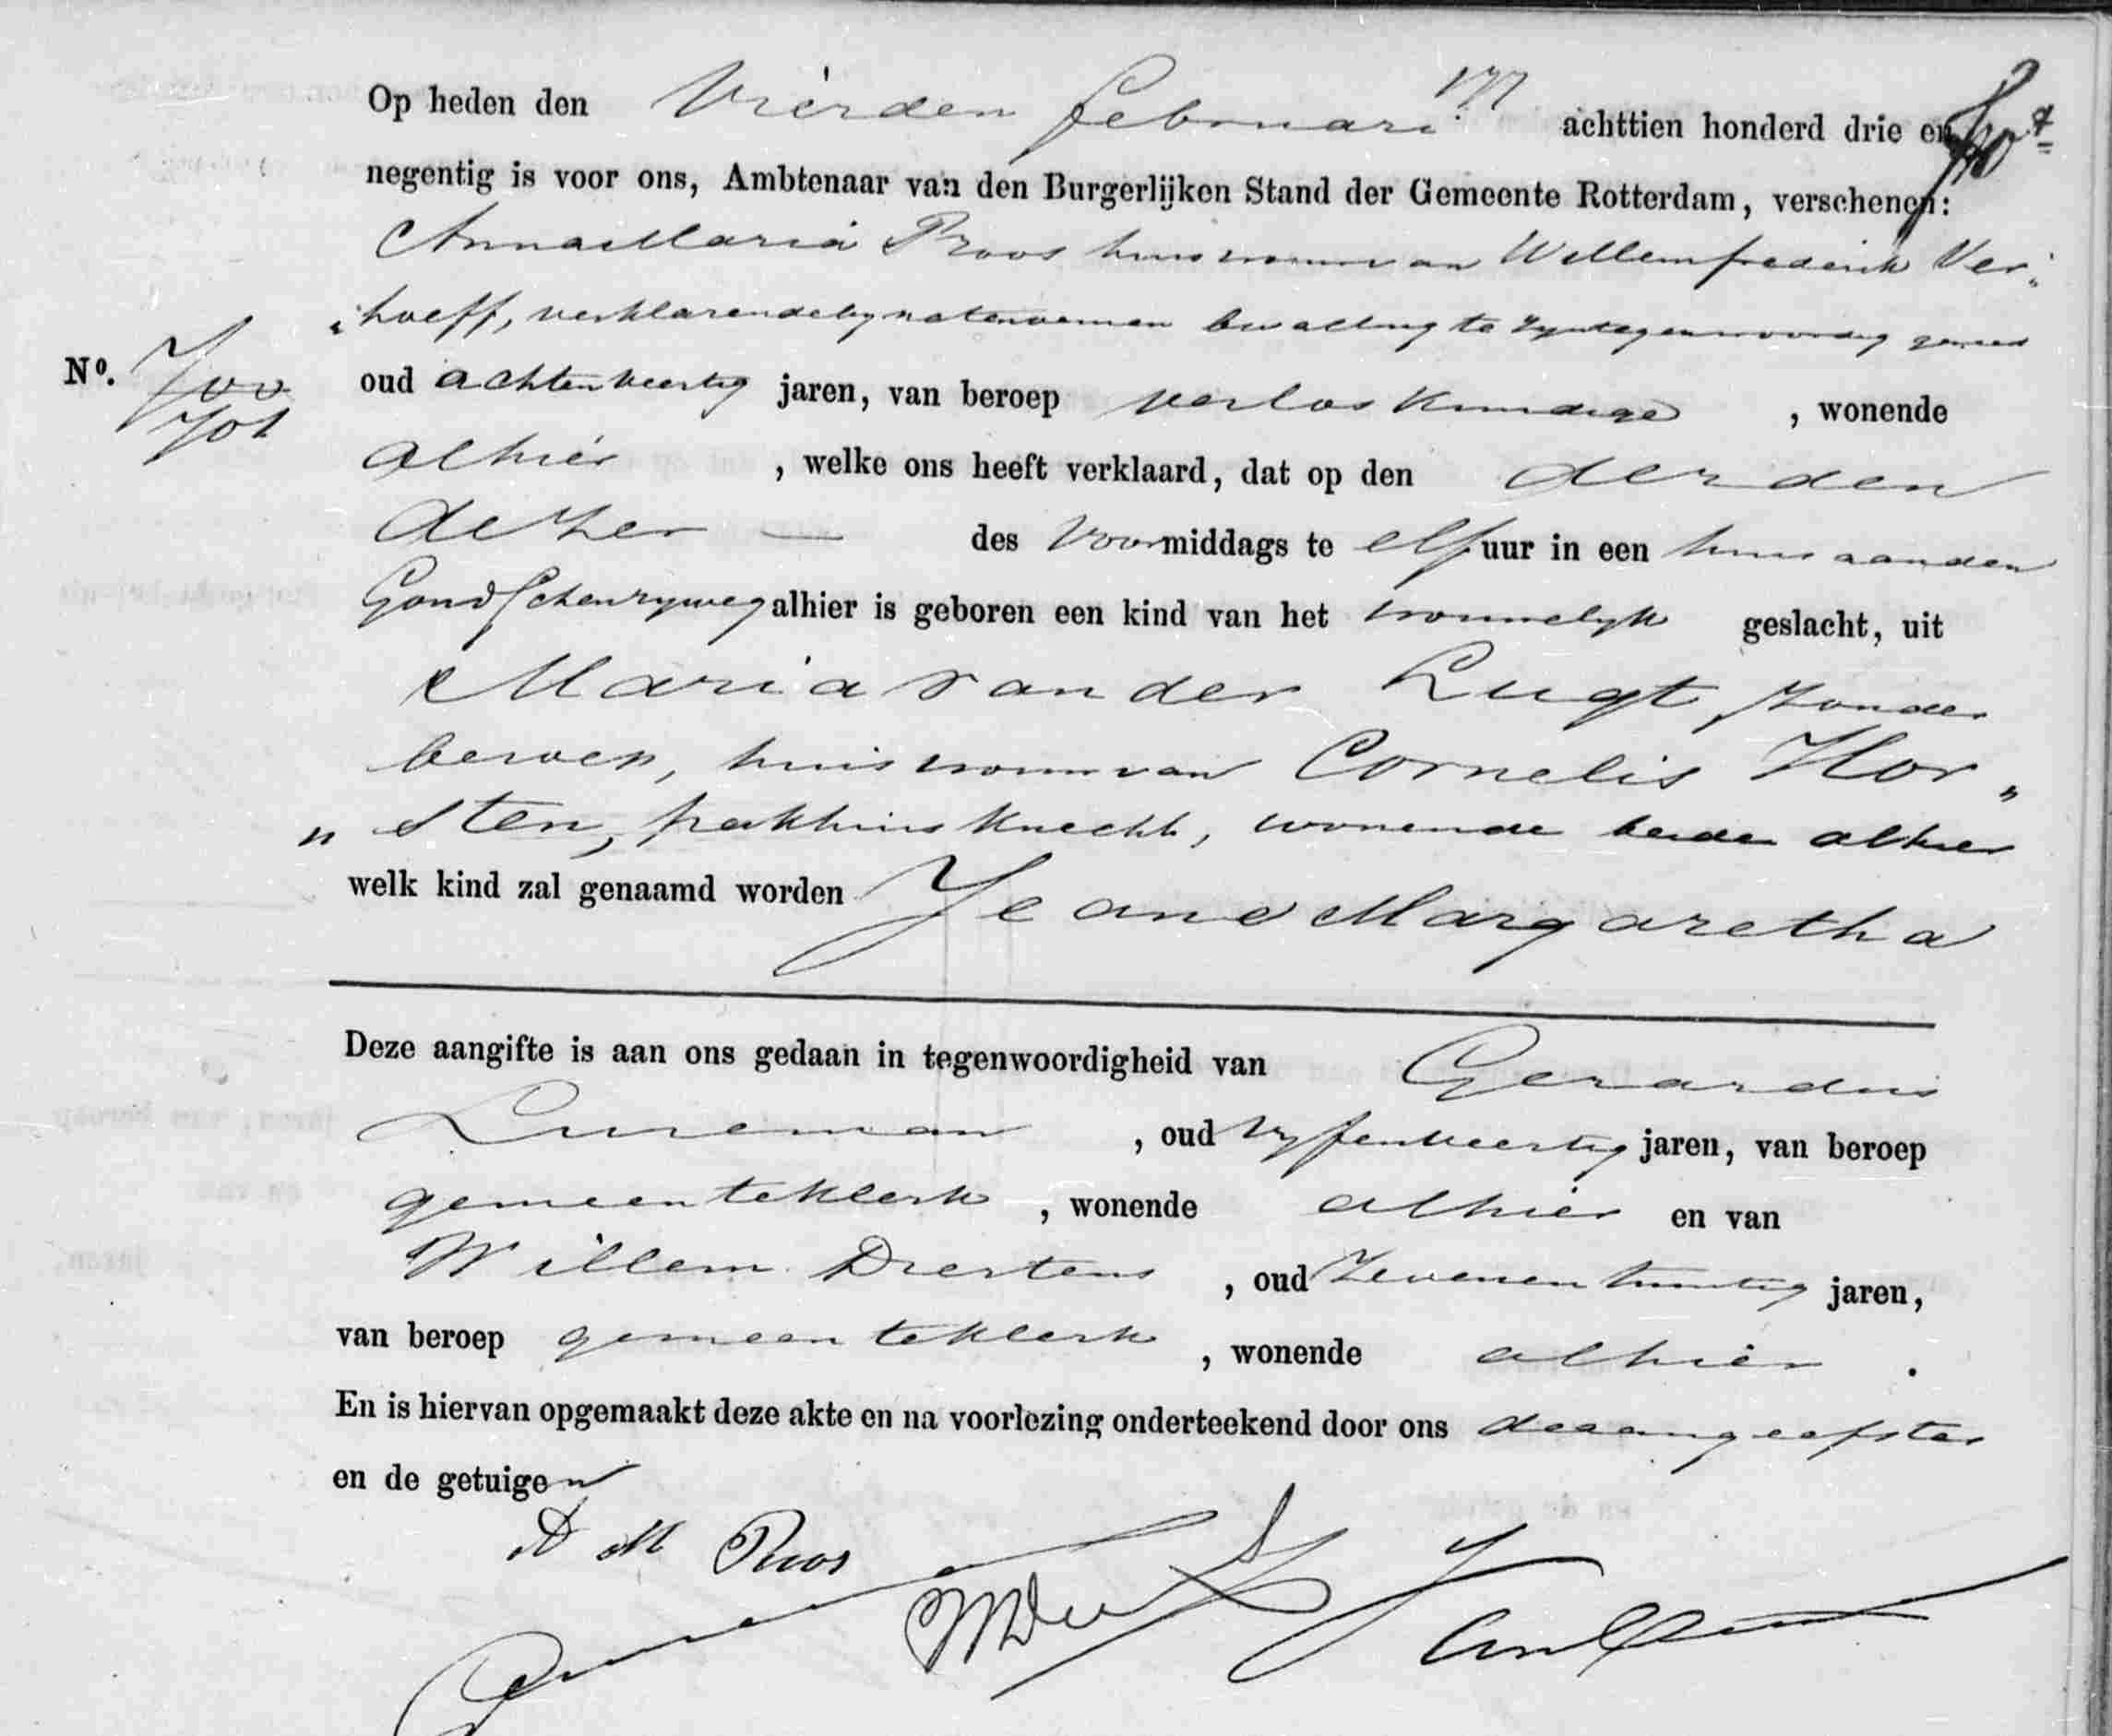 Op heden den Vierden Februari achttien honderd drie en
negentig is voor ons, Ambtenaar van den Burgerlijken Stand der Gemeente Rotterdam, verschenen:
Anna Maria Proos huisvrouw van Willem frederik Ver„
„hoeff, verklarende by de bevalling te zyn tegenwoordig geweest
No. 700
701
oud achtenveertig jaren, van beroep verloskundige , wonende
alhier , welke ons heeft verklaard, dat op den derden
dezer des Voormiddags te elf uur in een huis aan den
Goudschenryweg alhier is geboren een kind van het vrouwelyk geslacht, uit
Maria van der Lugt, zonder
beroep, huisvrouw van Cornelis Hor„
„sten, pakhuisknecht, wonende beiden alhier
welk kind zal genaamd worden Jeane Margaretha
Deze aangifte is aan ons gedaan in tegenwoordigheid van Gerardus
Lureman , oud vyfenveertig jaren, van beroep
gemeenteklerk , wonende alhier en van
Willem Diertens , oud zevenentwintig jaren,
van beroep gemeenteklerk , wonende alhier .
En is hiervan opgemaakt deze akte en na voorlezing onderteekend door ons de aangeefster
en de getuigen
A M Proos